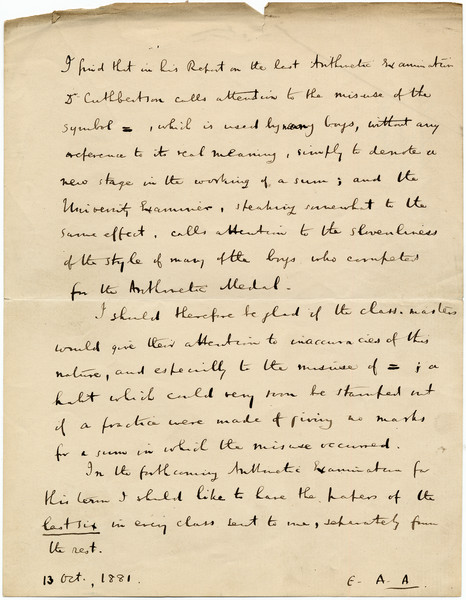 I find that in his Report on the last Arithmetic Examination
Dr Cuthbertson calls attention to the misuse of the
symbol = , which is used by many boys, without any
reference to its real meaning, simply to denote a
new stage in the working of a sum ; and the
University Examiner, speaking somewhat to the
same effect, calls attention to the slovenliness
of the style of many of the boys who competed
for the Arithmetic Medal.
I should therefore be glad if the class-masters
would give their attention to inaccuracies of this
nature, and especially to the misuse of = ; a
habit which could very soon be stamped out
if a practice were made of giving no marks
for a sum in which the misuse occurred.
In the forthcoming Arithmetic Examination for
this term I should like to have the papers of the
last six in every class sent to me, separately from
the rest.
13 Oct., 1881. E. A. A.